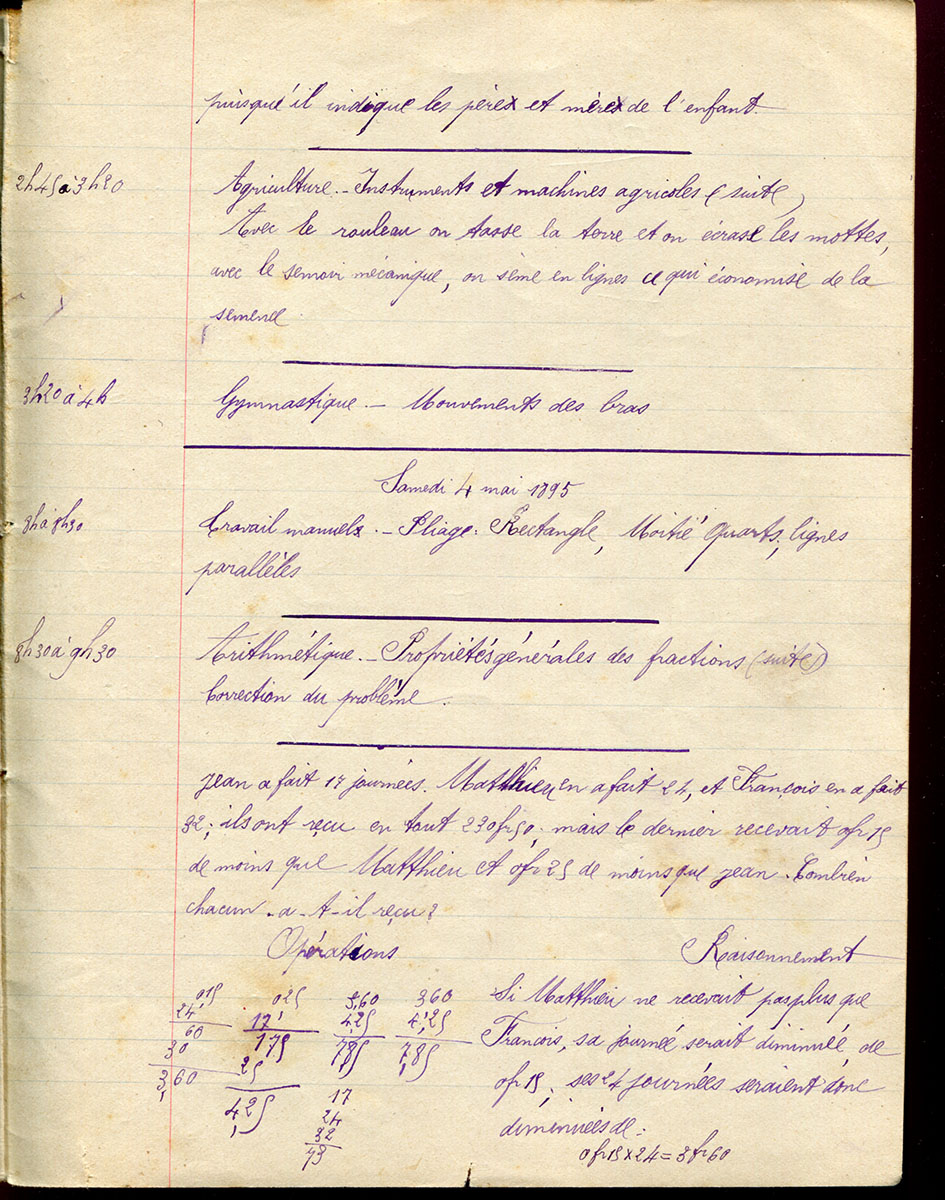 puisqu'il indique les pères et mères de l'enfant.
2h45 à 3h20 Agriculture. - Instruments et machines agricoles (suite)
Avec le rouleau on tasse la terre et on écrase les mottes,
avec le semoir mécanique, on sème en lignes ce qui économise de la
semence
3h20 à 4h Gymnastique. - Mouvements des bras
Samedi 4 mai 1895
8h à 8h30 Travail manuel. - Pliage: Rectangle, Moitié Quarts, lignes
parallèles
8h30 à 9h30 Arithmétique. - Propriétés générales des fractions (suite)
Correction du problème.
Jean a fait 17 journées. Matthieu en a fait 24, et François en a fait
32; ils ont reçu en tout 230fr50; mais le dernier recevait 0fr15
de moins que Matthieu et 0fr25 de moins que Jean. Combien
chacun - a - t - il reçu?
Opérations Raisonnement
015 025 3,60 360 Si Matthieu ne recevait pas plus que
24 17 4,25 4,25
60 1,75 7,85 7,85 François, sa journée serait diminuée de
30 25
3,60 4,25 17 0fr15; ses 24 journées seraient donc
24
32 diminuées de:
73 0fr15 x 24 = 3fr60